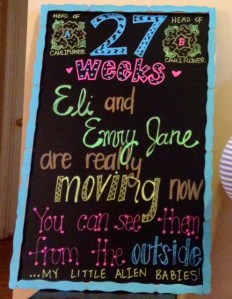 HEAD OF A CAULIFLOWER
27
HEAD OF B CAULIFLOWER
weeks
Eli and
Emry Jane
are really
moving now
You can see them
from the outside
...MY LITTLE ALIEN BABIES!